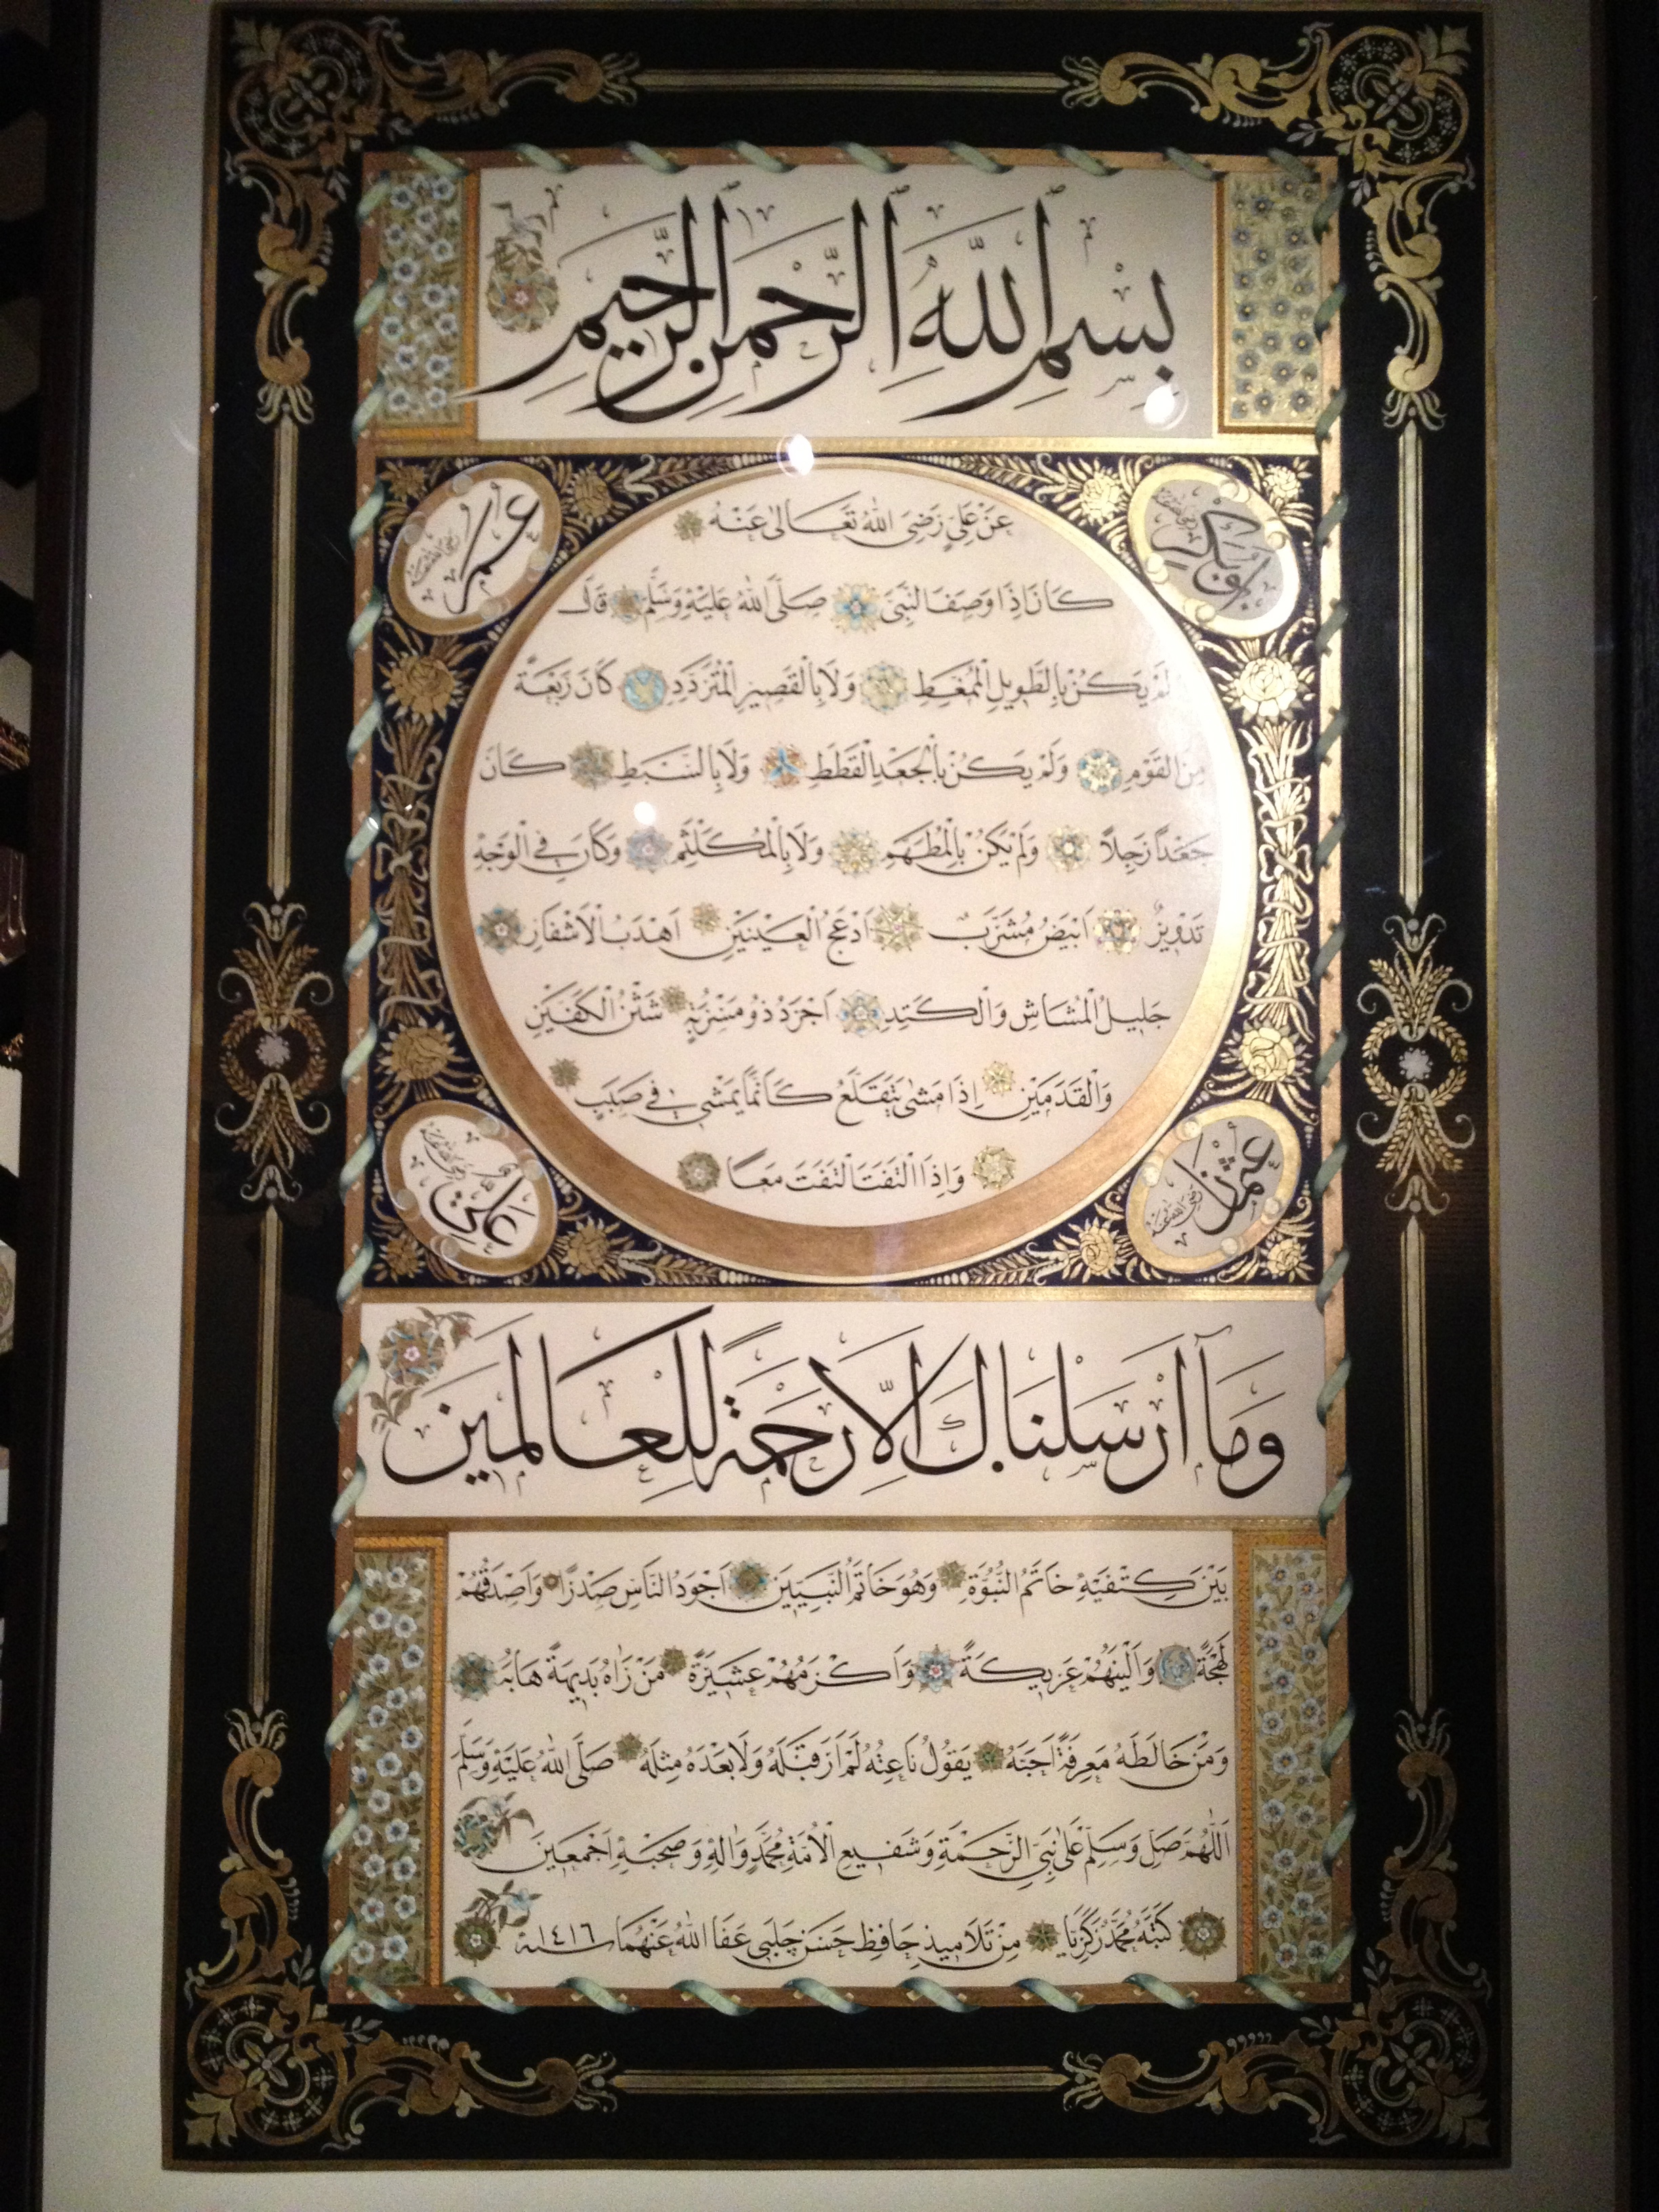 بِسْمِ اللّٰهِ الرَّحْمٰنِ الرَّحِيمِ
ابوبكر رضى الله تعالى عنه
عمر رضى الله عنه
عَنْ عَلِيٍّ رَضِيَ اللّٰهُ تَعَالٰى عَنْهُ
كَانَ اِذَا وَصَفَ النَّبِيَّ صَلَّى اللّٰهُ عَلَيْهِ وَسَلَّمَ قَالَ
لَمْ يَكُنْ بِالطَّوِيلِ الْمُمَّغِطِ وَلَا بِالْقَصِيرِ الْمُتَرَدِّدِ كَانَ رَبْعَةً
مِنَ الْقَوْمِ وَلَمْ يَكُنْ بِالْجَعْدِ الْقَطَطِ وَلَا بِالسَّبَطِ كَانَ
جَعْدًا رَجِلًا وَلَمْ يَكُنْ بِالْمُطَهَّمِ وَلَا بِالْمُكَلْثَمِ وَكَانَ فِي الْوَجْهِ
تَدْوِيرٌ اَبْيَضُ مُشْرَبٌ اَدْعَجُ الْعَيْنَيْنِ اَهْدَبُ الْاَشْفَارِ
جَلِيلُ الْمُشَاشِ وَالْكَتَدِ اَجْرَدُ ذُو مَسْرُبَةٍ شَثْنُ الْكَفَّيْنِ
وَالْقَدَمَيْنِ اِذَا مَشٰى يَتَقَلَّعُ كَاَنَّمَا يَمْشِي فِي صَبَبٍ
وَاِذَا الْتَفَتَ الْتَفَتَ مَعًا
عثمان رضى الله عنه
على رضى الله عنه
وَمَا اَرْسَلْنَاكَ اِلَّا رَحْمَةً لِلْعَالَمِينَ
بَيْنَ كِتْفَيْهِ خَاتَمُ النُّبُوَّةِ وَهُوَ خَاتَمُ النَّبِيِّينَ اَجْوَدُ النَّاسِ صَدْرًا وَاَصْدَقُهُمْ
لَهْجَةً وَاَلْيَنُهُمْ عَرِيكَةً وَاَكْرَمُهُمْ عَشِيرَةً مَنْ رَاٰهُ بَدِيهَةً هَابَهُ
وَمَنْ خَالَطَهُ مَعْرِفَةً اَحَبَّهُ يَقُولُ نَاعِتُهُ لَمْ اَرَ قَبْلَهُ وَلَا بَعْدَهُ مِثْلَهُ صَلَّى اللّٰهُ عَلَيْهِ وَسَلَّمَ
اَللّٰهُمَّ صَلِّ وَسَلِّمْ عَلٰى نَبِيِّ الرَّحْمَةِ وَشَفِيعِ الْاُمَّةِ مُحَمَّدٍ وَاٰلِهِ وَصَحْبِهِ اَجْمَعِينَ
كَتَبَهُ مُحَمَّدْ زَكَرِيَّا مِنْ تَلَامِيذِ حَافِظْ حَسَنْ چَلَبِي عَفَا اللّٰهُ عَنْهُمَا سنة ١٤١٦